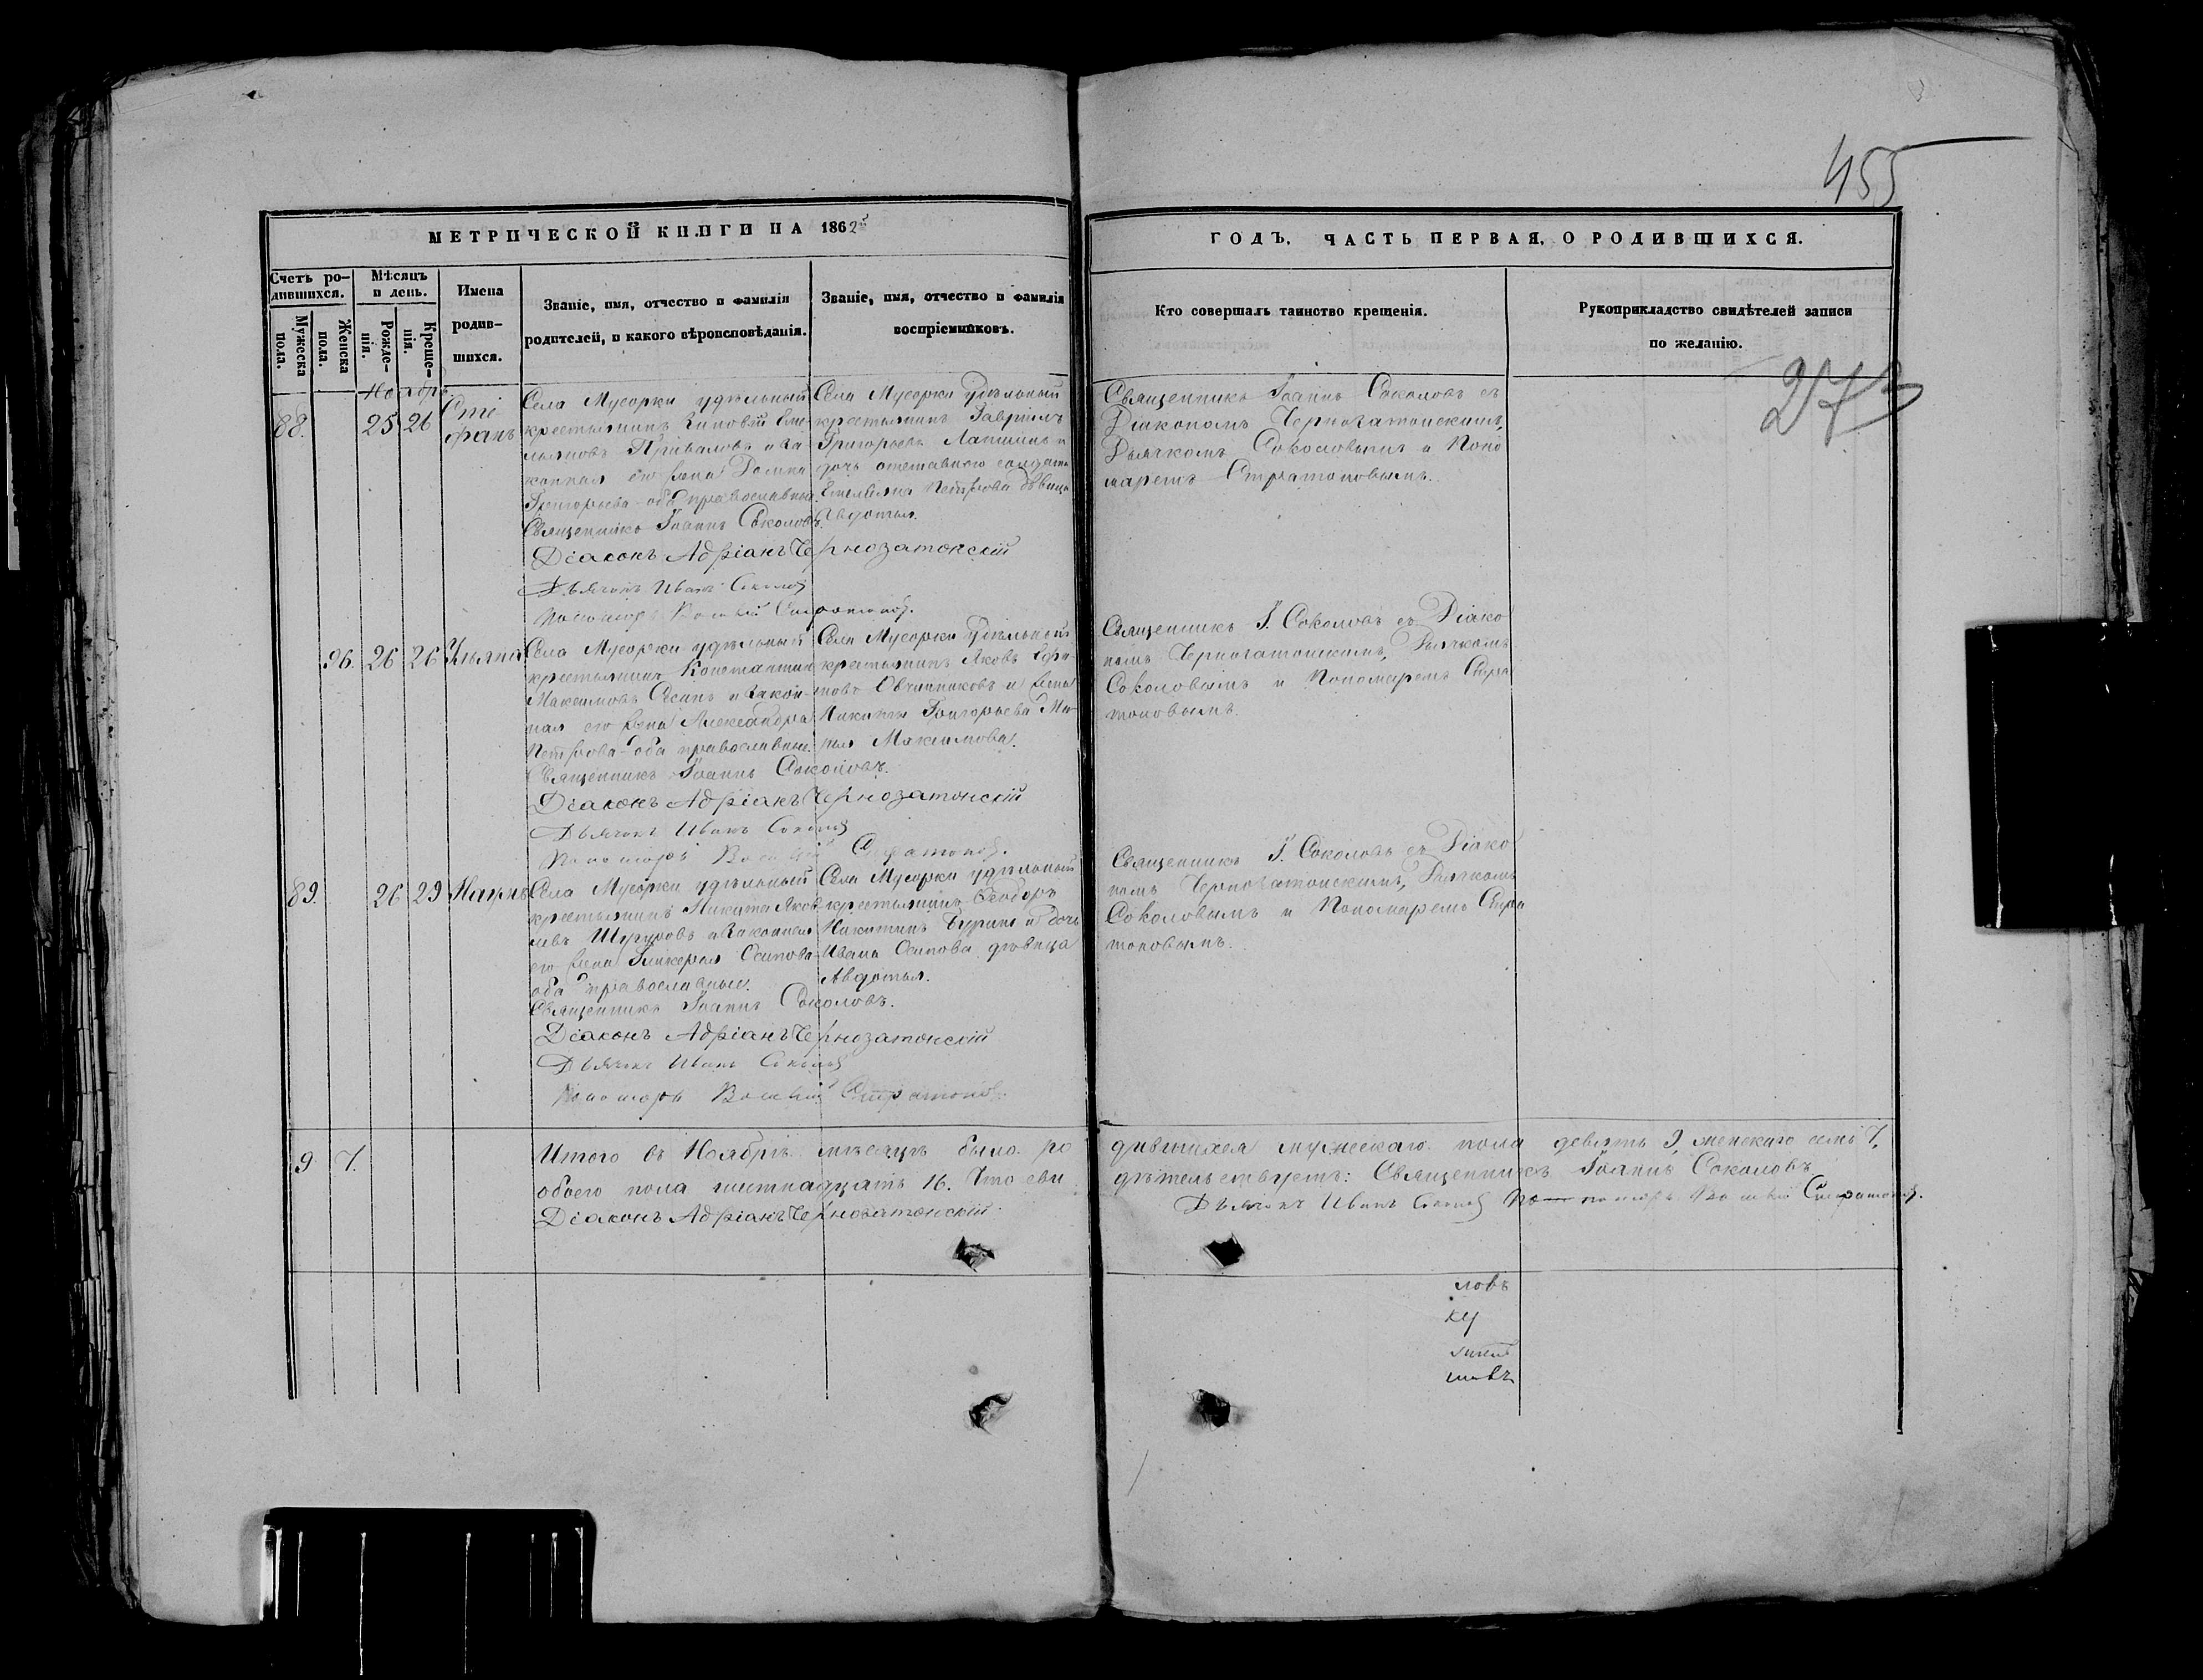 455
МЕТРИЧЕСКОЙ КНИГИ НА 1862й
ГОДЪ. ЧАСТЬ ПЕРВАЯ, О РОДИВШИХСЯ.
Счетъ ро-
дившихся.
Мужеска
пола.
Женска
пола.
Мѣсяцъ
и день.
Рожде-
нія.
Креще-
нія.
Имена
родив-
шихся.
Званіе, имя, отчество и фамилія
родителей, и какого вѣроисповѣданія.
Званіе, имя, отчество и фамилія
воспріемниковъ.
Кто совершалъ таинство крещенія.
Рукоприкладство свидѣтелей записи
по желанію.
273
Ноябрь
88. 25 26 Сте
фанъ
Села Мусорки удѣльный
крестьянинъ Зиновій Еме
льяновъ Приваловъ и за
конная его жена Домна
Григорьева оба православные.
Села Мусорки Удѣльный
крестьянинъ Гавріилъ
Григорьевъ Лапшинъ и
дочь отставнаго солдата
Емельяна Петрова дѣвица
Авдотья.
Священникъ Іоаннъ Соколовъ.
Діаконъ Адріанъ Чернозатонскій
Дьячокъ Иванъ Соколовъ
Пономарь Стратоновъ.
Священникъ Іоаннъ Соколовъ съ
Діакономъ Чернозатонскимъ,
Дьячкомъ Соколовымъ и Поно
маремъ Стратоновымъ.
96. 26 26 Ульяна
Села Мусорки удѣльный
крестьянинъ Константинъ
Максимовъ и закон-
ная его жена Александра
Петрова оба православные.
Села Мусорки Удѣльный
крестьянинъ Яковъ
Овчинниковъ и жена
Никиты Григорьева Ма-
рья Максимова.
Священникъ Іоаннъ Соколовъ.
Діаконъ Адріанъ Чернозатонскій
Дьячокъ Иванъ Соколовъ
Пономарь Стратоновъ.
Священникъ І. Соколовъ съ Діако
номъ Чернозатонскимъ, Дьячкомъ
Соколовымъ и Пономаремъ Стра
тоновымъ.
89. 26 29 Наумъ
Села Мусорки удѣльный
крестьянинъ Никита Яков
левъ Шуруповъ и Законная
его жена Гликерья Осипова
оба православные.
Села Мусорки удѣльный
крестьянинъ Ѳеодоръ
Никитинъ Буринъ и дочь
Ивана Осипова дѣвица
Авдотья.
Священникъ Іоаннъ Соколовъ.
Діаконъ Адріанъ Чернозатонскій
Дьячокъ Иванъ Соколовъ
Пономарь Стратоновъ.
Священникъ І. Соколовъ съ Діако
номъ Чернозатонскимъ, Дьячкомъ
Соколовымъ и Пономаремъ Стра
тоновымъ.
9 7. Итого въ Ноябрѣ мѣсяцѣ было ро
дившихся мужескаго пола девять 9, женскаго семь 7,
обоего пола шестнадцать 16. Что сви
дѣтельствуетъ: Священникъ Іоаннъ Соколовъ
Діаконъ Адріанъ Чернозатонскій
Дьячокъ Иванъ Соколовъ Пономарь Стратоновъ.
ловъ
ку